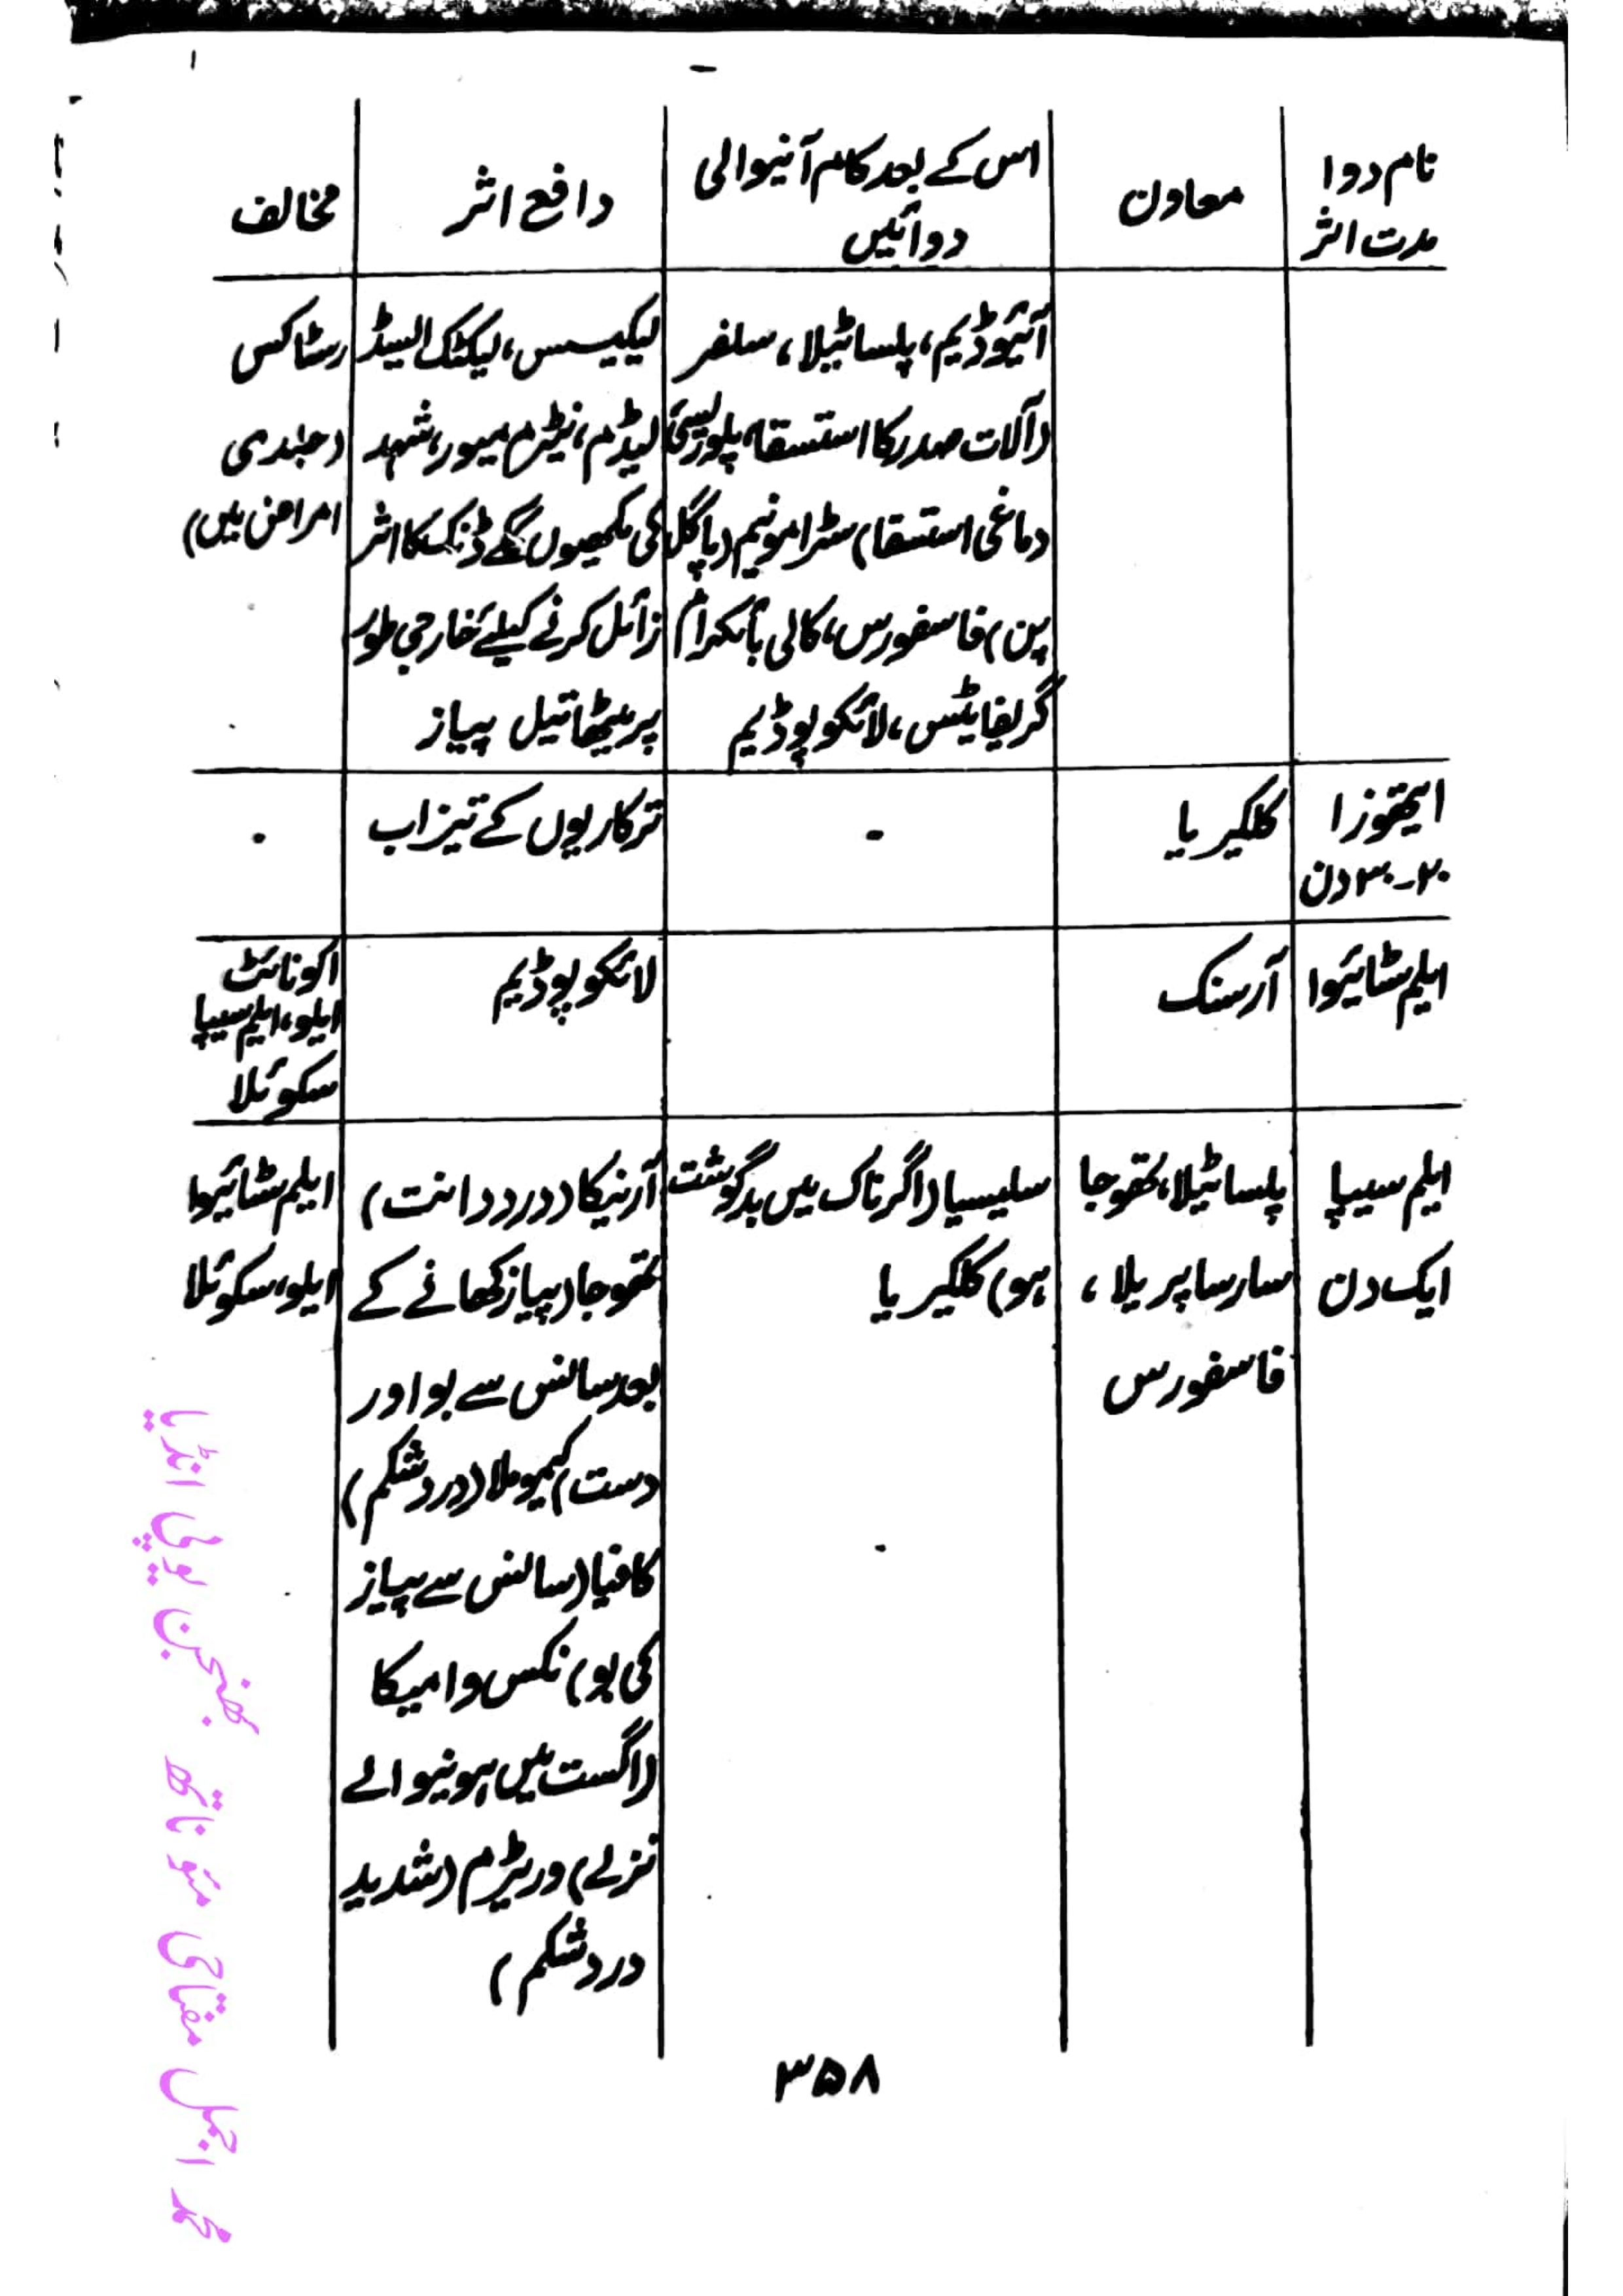 نام دوا
مدت اثر
معاون
اس کے بعد کام آنیوالی
دوائیں
دافع اثر
مخالف
آئیوڈیم، پلساٹیلا، سلفر
(آلات صدر کا استسقاء پلوریسی
دماغی استسقا) سٹرامونیم (پاگل
پن) فاسفورس، کالی بائکرام
گریفائٹس، لائکوپوڈیم
لیکیسس، لیکٹک ایسڈ
لیڈم، نیٹرم میور، شہد
کی مکھیوں کے ڈنک کا اثر
زائل کرنے کیلئے خارجی طور
پر میٹھا تیل پیاز
رسٹاکس
(جلدی
امراض میں)
ایتھوزا
۲۰-۳۰ دن
کلکیریا
-
ترکاریوں کے تیزاب
-
ایلم سٹائیوا
آرسنک
لائکوپوڈیم
اکونائٹ
ایلو، ایلم سیپا
سکوئلا
ایلم سیپا
ایک دن
پلساٹیلا، تھوجا
سارساپریلا،
فاسفورس
سلیسیا (اگر ناک میں بدگوشت
ہو) کلکیریا
-
آرنیکا (درد دانت)
تھوجا (پیاز کھانے کے
بعد سانس سے بو اور
دست) کیموملا (درد شکم)
کافیا (سانس سے پیاز
کی بو) نکس وامیکا
(اگست میں ہونیوالے
نزلے) وریٹرم (شدید
درد شکم)
ایلم سٹائیوا
ایلو، سکوئلا
۳۵۸
محمد اجمل مفتاحی مئو ناتھ بھنجن یوپی انڈیا